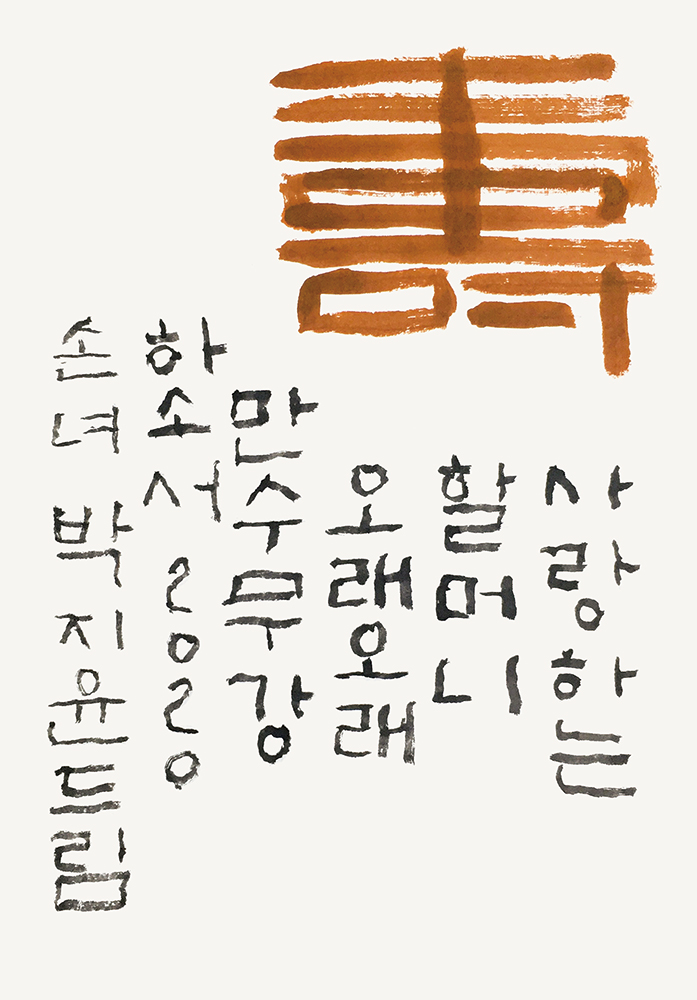 壽
사랑하는
할머니
오래오래
만수무강
하소서 2020
손녀 박지윤드림